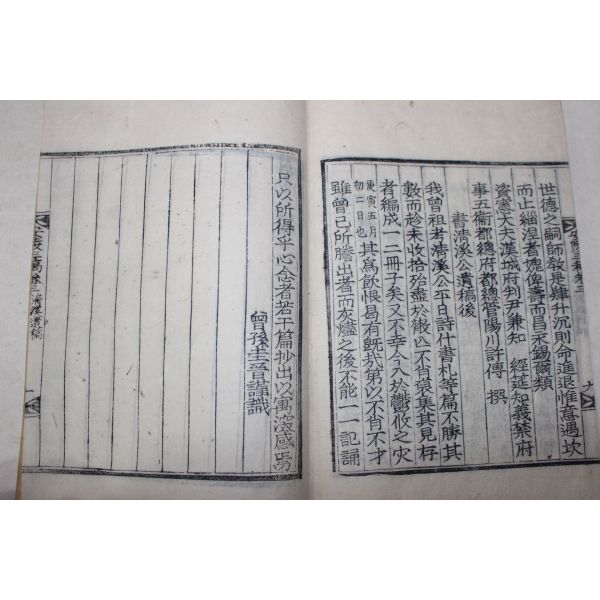 世德之嗣師敎是肆升沉則命進退惟意遇坎
而止緇涅者媿俾壽而昌永錫爾類
資憲大夫漢城府判尹兼知 經筵知義禁府
事五衛都摠府都摠管陽川許傳 撰
書淸溪公遺稿後
我曾祖考淸溪公平日詩什書札等篇不勝其
數而趁未收拾殆盡於散亡不肖裒集其見存
者編成一二冊子矣又不幸今入於鬱攸之灾
庚寅五月初二日也 其爲飮恨曷有旣哉第以不肖不才
雖曾已所謄出者而灰燼之後不能一一記誦
只以所得乎心念者若干篇抄出以寓深感焉
曾孫 謹識
三稿卷三 淸溪遺稿